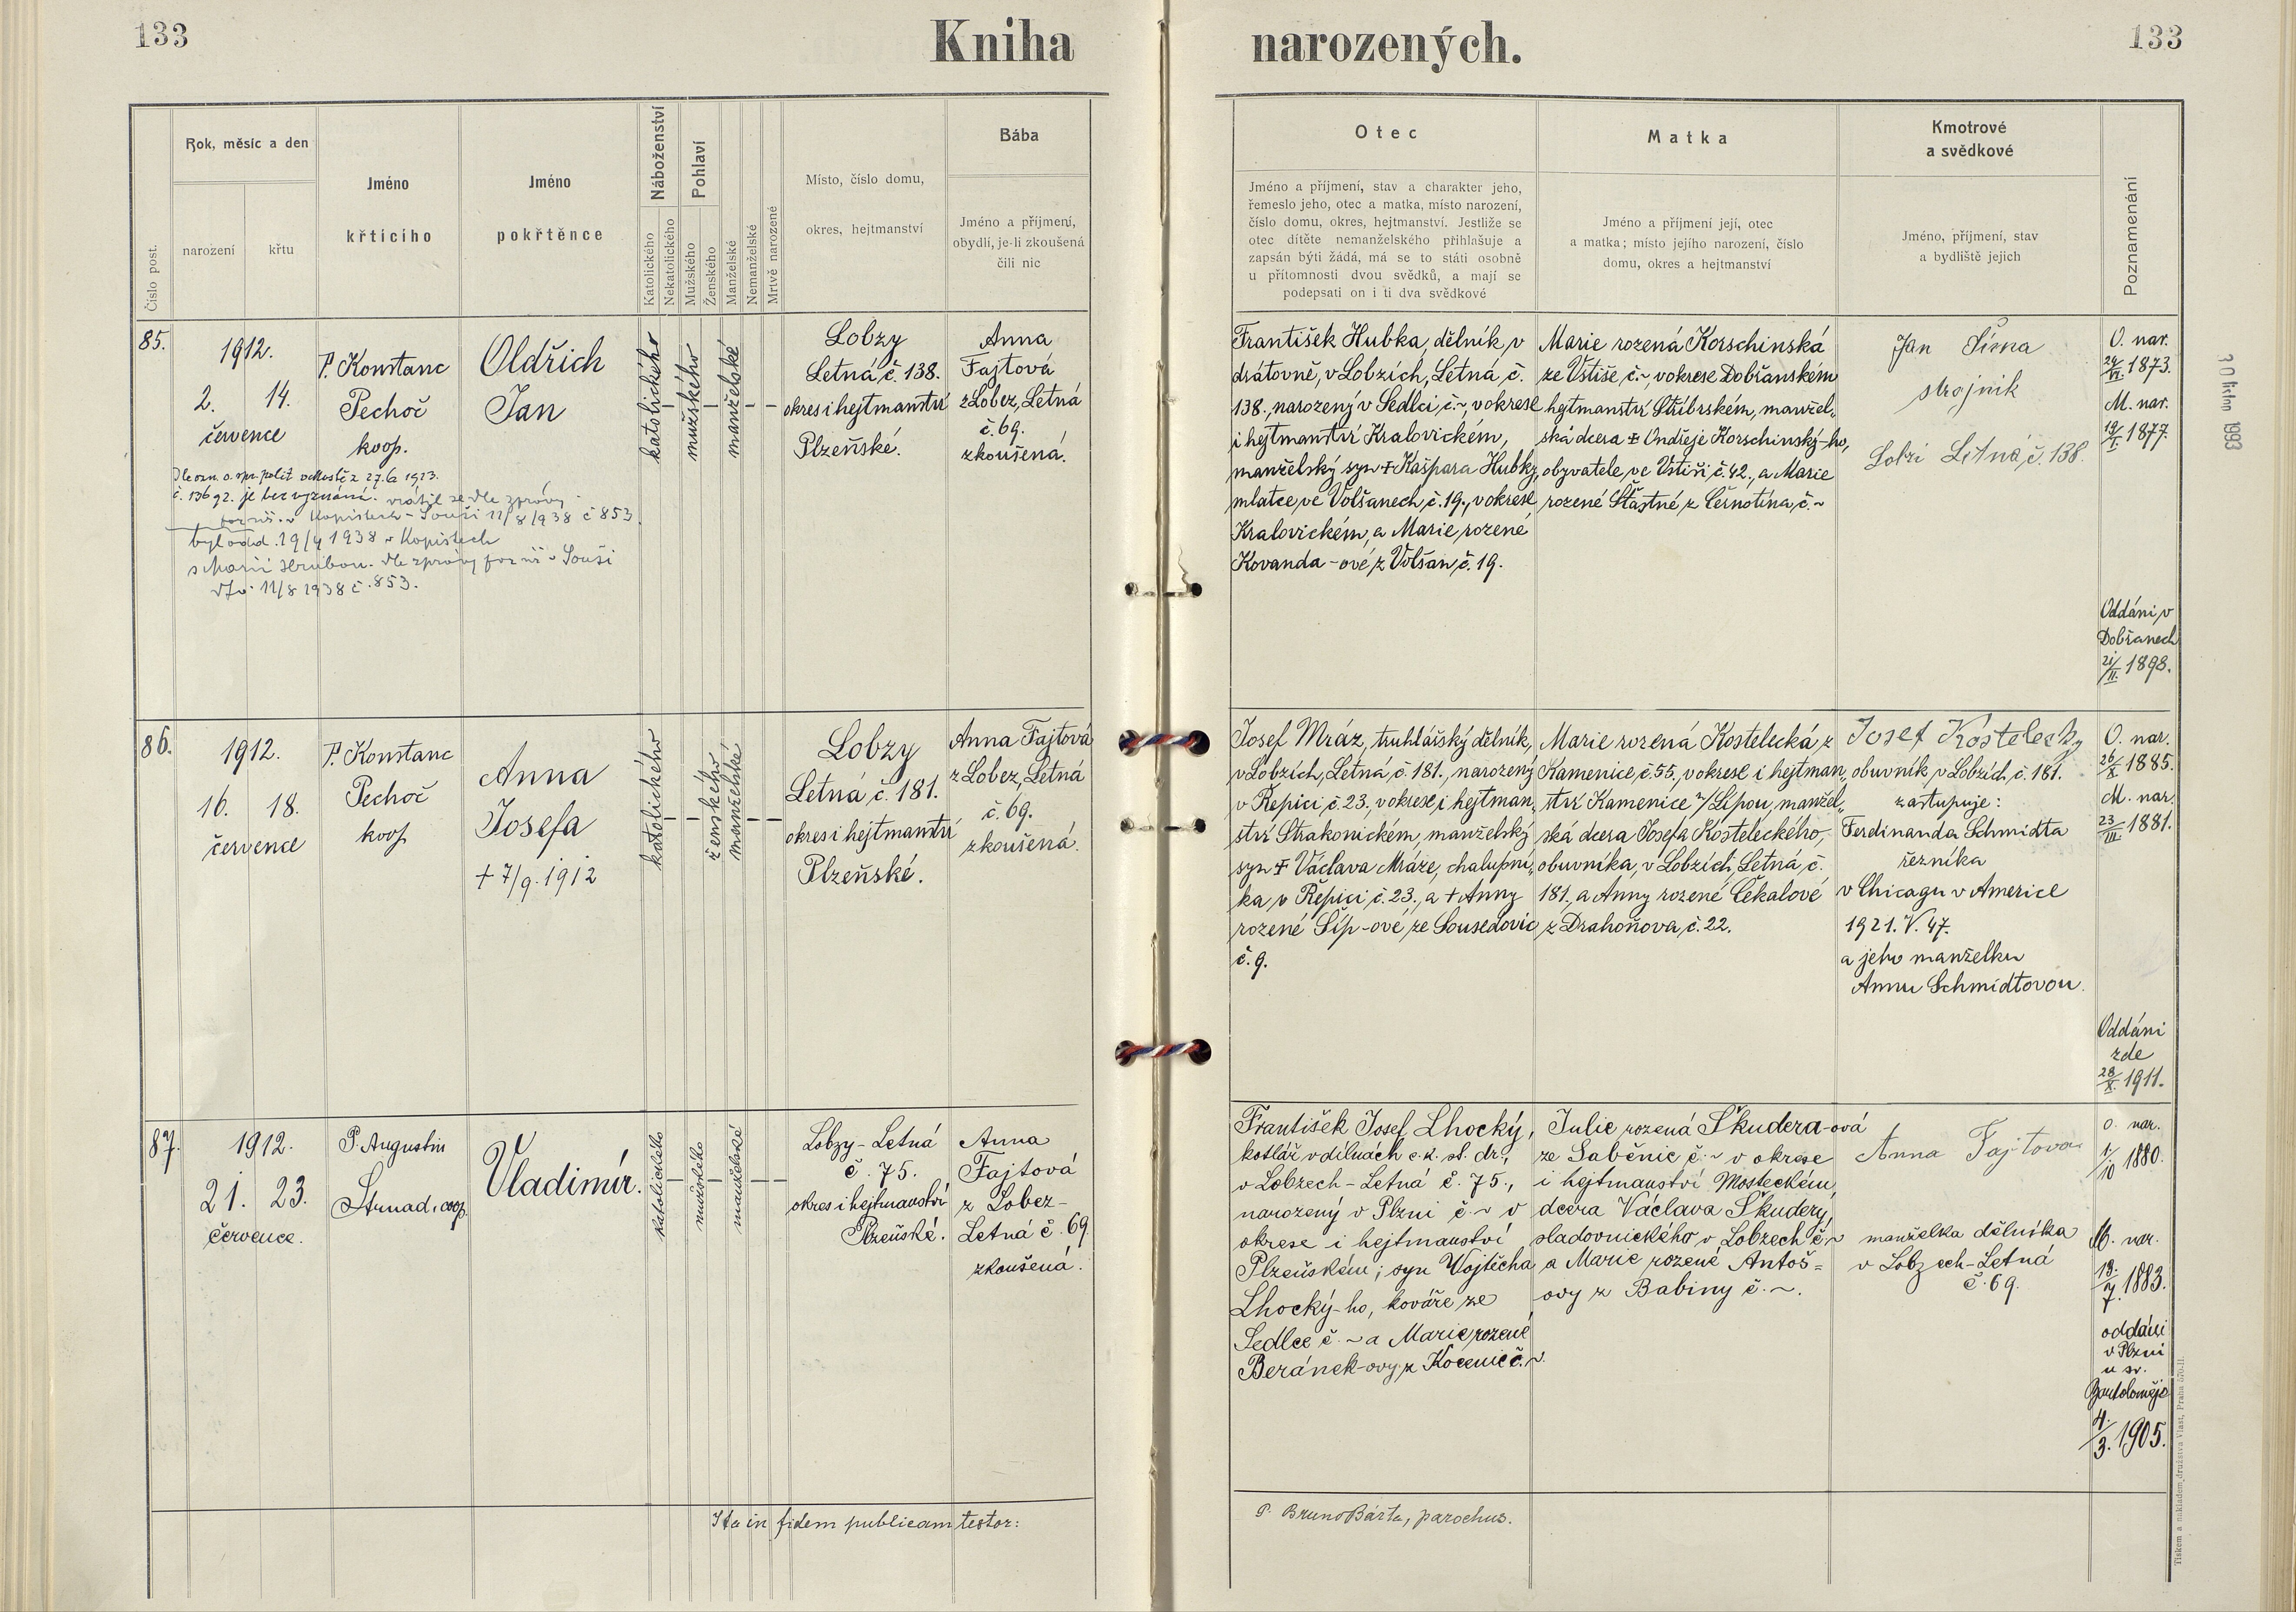 133
Kniha
narozených.
133
Číslo post.
Rok, měsíc a den
narození
křtu
Jméno
křtícího
Jméno
pokřtěnce
Náboženství
Katolického
Nekatolického
Pohlaví
Mužského
Ženského
Manželské
Nemanželské
Mrtvě narozené
Místo, číslo domu,
okres, hejtmanství
Bába
Jméno a příjmení,
obydlí, je-li zkoušená
čili nic
Otec
Jméno a příjmení, stav a charakter jeho,
řemeslo jeho, otec a matka, místo narození,
číslo domu, okres, hejtmanství. Jestliže se
otec dítěte nemanželského přihlašuje a
zapsán býti žádá, má se to státi osobně
u přítomnosti dvou svědků, a mají se
podepsati on i ti dva svědkové
Matka
Jméno a příjmení její, otec
a matka; místo jejího narození, číslo
domu, okres a hejtmanství
Kmotrové
a svědkové
Jméno, příjmení, stav
a bydliště jejich
Poznamenání
85.
1912.
2. 14.
července
P. Konstanc
Pechoč
koop.
Oldřich
Jan
katolického
mužského
manželské
Lobzy
Letná č. 138.
okres i hejtmanství
Plzeňské.
Anna
Fajtová
z Lobez, Letná
č. 69.
zkoušená.
Dle ozn. o. spr. polit z 27.6 1923.
č. 13692. je bez vyznání. vrátil se dle zprávy
v Kopistech - Souši 11/8/1938 č 853.
byl odd. 19/4 1938 v Kopistech
s Marií Hrubou. dle zprávy v Souši
11/8 1938 č. 853.
František Hubka, dělník v
drátovně, v Lobzích, Letná, č.
138., narozený v Sedlci, č. ~, v okrese
i hejtmanství Kralovickém,
manželský syn † Kašpara Hubky,
mlatce ve Volšanech č. 19., v okrese
Kralovickém, a Marie, rozené
Kovanda-ové, z Volšan č. 19.
Marie rozená Korschinská
ze Vstiše, č. ~, v okrese Dobřanském
hejtmanství Stříbrském, manžel„
ská dcera † Ondřeje Korschinský-ho,
obyvatele, ve Vstiši č. 42., a Marie
rozené Šťastné, z Černotína, č. ~
Jan Šírna
strojník
Lobzi Letná č. 138.
O. nar.
24/VI. 1873.
M. nar.
19/I. 1877.
Oddáni v
Dobřanech
21/II. 1898.
30 listop 1993
86.
1912.
16. 18.
července
P. Konstanc
Pechoč
koop
Anna
Josefa
† 7/9. 1912
katolického
ženského
manželské
Lobzy
Letná, č. 181.
okres i hejtmanství
Plzeňské.
Anna Fajtová
z Lobez, Letná
č. 69.
zkoušená.
Josef Mráz, truhlářský dělník,
v Lobzích, Letná, č. 181., narozený
v Řepici č. 23., v okrese i hejtman„
ství Strakonickém, manželský
syn † Václava Mráze, chalupní„
ka v Řepici č. 23., a † Anny
rozené Šíp-ové, ze Sousedovic
č. 9.
Marie rozená Kostelecká z
Kamenice, č. 55., v okrese i hejtman„
ství Kamenice n/Lipou, manžel„
ská dcera Josefa Kosteleckého,
obuvníka, v Lobzích, Letná, č.
181., a Anny rozené Čekalové
z Drahoňova, č. 22.
Josef Kostelecky
obuvník v Lobzích č. 181.
zastupuje:
Ferdinanda Schmidta
řezníka
v Chicagu v Americe
1921. V. 47.
a jeho manželku
Annu Schmidtovou.
O. nar.
26/X. 1885.
M. nar.
23/III. 1881.
Oddáni
zde
28/X. 1911.
87.
1912.
21. 23.
července.
P. Augustin
Strnad, coop.
Vladimír.
katolického
mužského
manželské
Lobzy - Letná
č. 75.
okres i hejtmanství
Plzeňské.
Anna
Fajtová
z Lobez-
Letná č. 69.
zkoušená.
František Josef Lhocký,
kotlář v dílnách c. k. st. dr.,
v Lobzech - Letná č. 75.,
narozený v Plzni č. ~ v
okrese i hejtmanství
Plzeňském; syn Vojtěcha
Lhocký-ho, kováře ze
Sedlce č. ~ a Marie, rozené
Beránek-ovy z Kocenic č. ~.
Julie rozená Škudera-ová
ze Saběnic č. ~ v okrese
i hejtmanství Mosteckém,
dcera Václava Škudery,
sladovnického v Lobzech č. ~
a Marie rozené Antoš=
ovy z Babiny č. ~.
Anna Fajtova
manželka dělníka
v Lobzech - Letná
č. 69.
O. nar.
1./10 1880.
M. nar.
13./7. 1883.
oddáni
v Plzni
u sv.
Bartoloměje
4./3. 1905.
Ita in fidem publicam testor:
P. Bruno Bárta, parochus.
Tiskem a nákladem družstva Vlast, Praha 570-II.